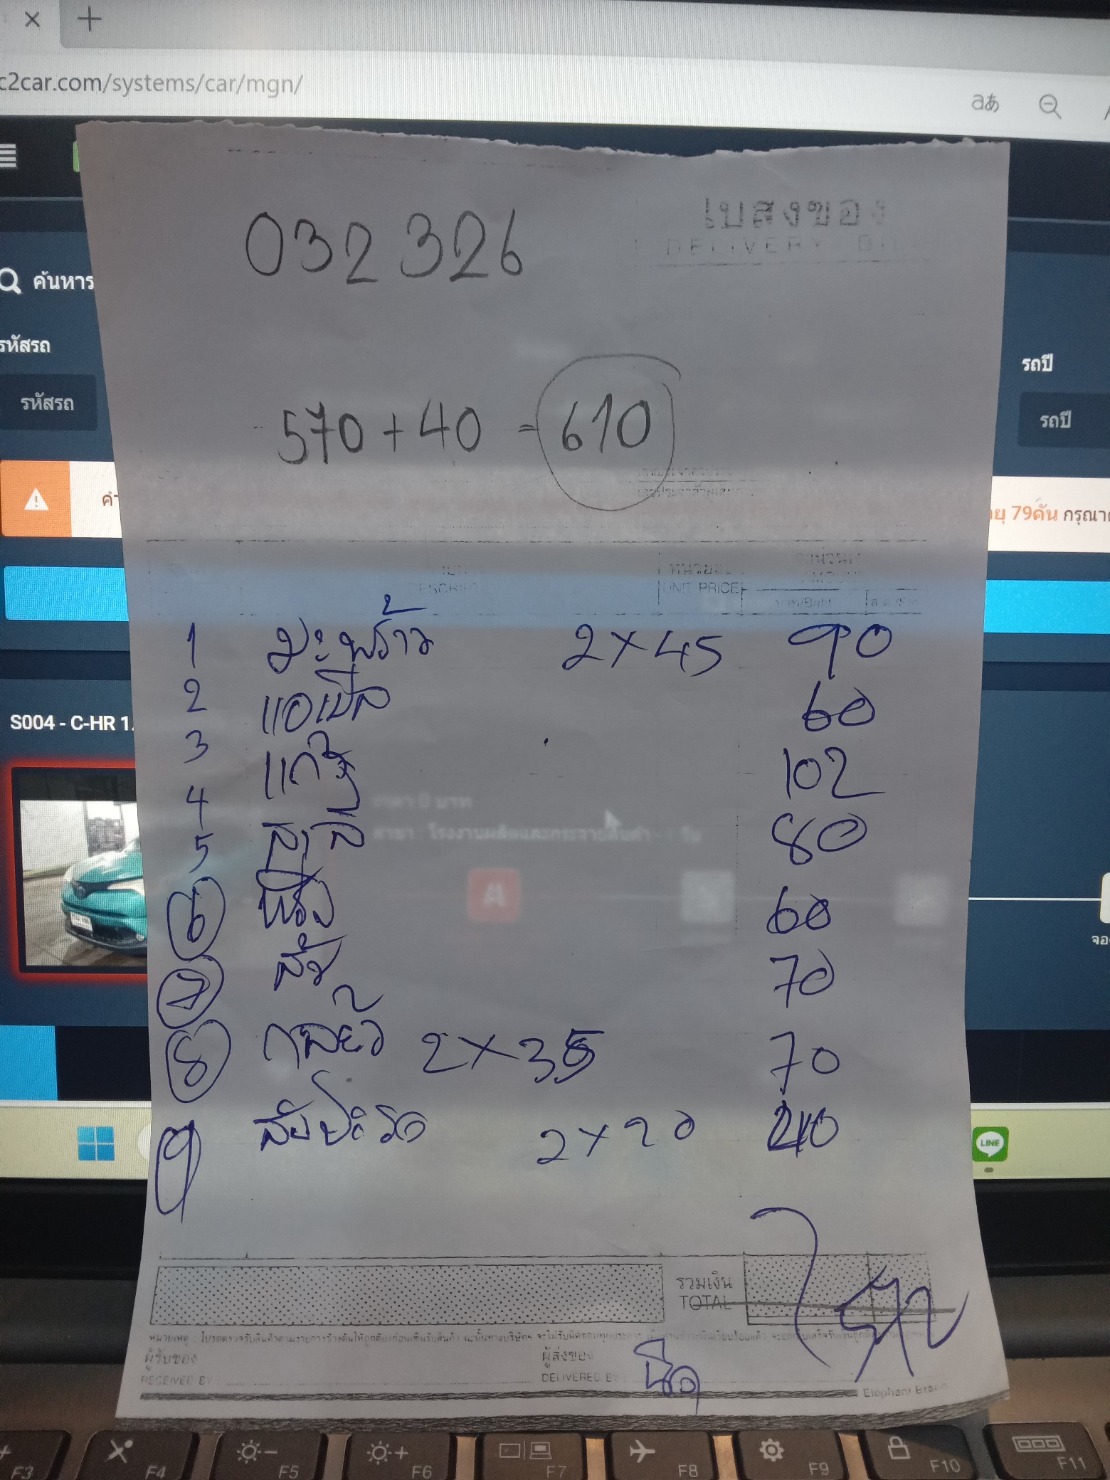 c2car.com/systems/car/mgn/
aあ
ใบส่งของ
032326
ค้นหาร
รหัสรถ
รหัสรถ
รถปี
รถปี
570 + 40 = 610
79คัน กรุณา
UNIT PRICE
1 มะพร้าว 2 x 45 90
2 แอปเปิ้ล 60
3 แก้ว 102
4 สาลี่ 80
5 ฝรั่ง 60
6 ส้ม 70
7 กล้วย 2 x 35 70
8 สับปะรด 2 x 20 40
9
S004 - C-HR 1.
LINE
รวมเงิน
TOTAL
ผู้รับของ
RECEIVED BY
ผู้ส่งของ
DELIVERED BY
Elephant Brand
F3 F4 F5 F6 F7 F8 F9 F10 F11